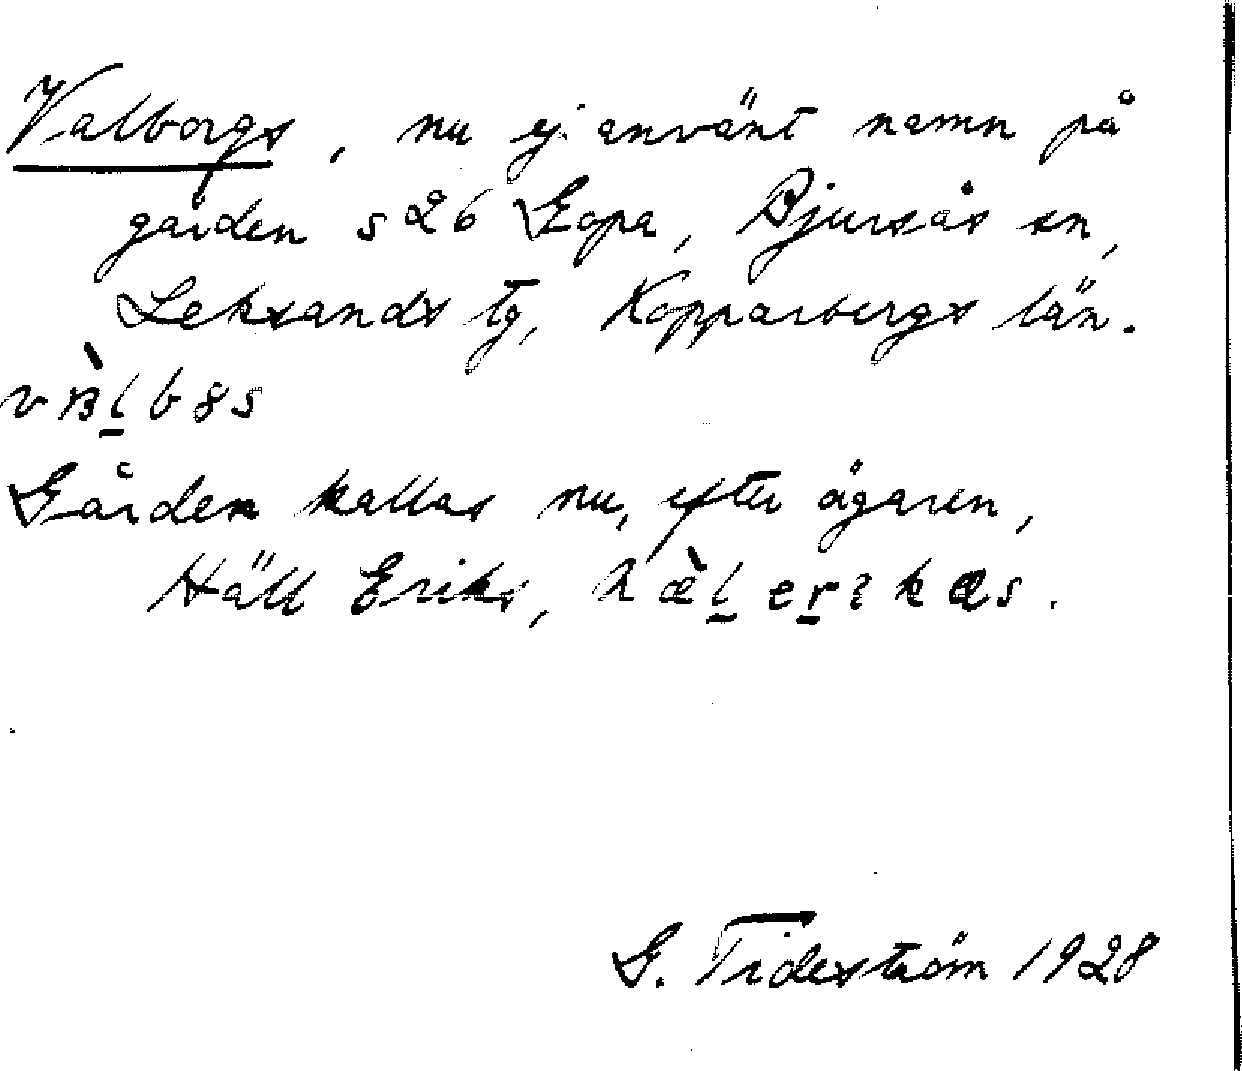 Valborgs, nu ej använt namn på
gården s26 Gopa, Bjursås sn,
Leksands tg, Kopparbergs län.
Gården kallas nu, efter ägaren,
Häll Eriks,
G. Tideström 1928